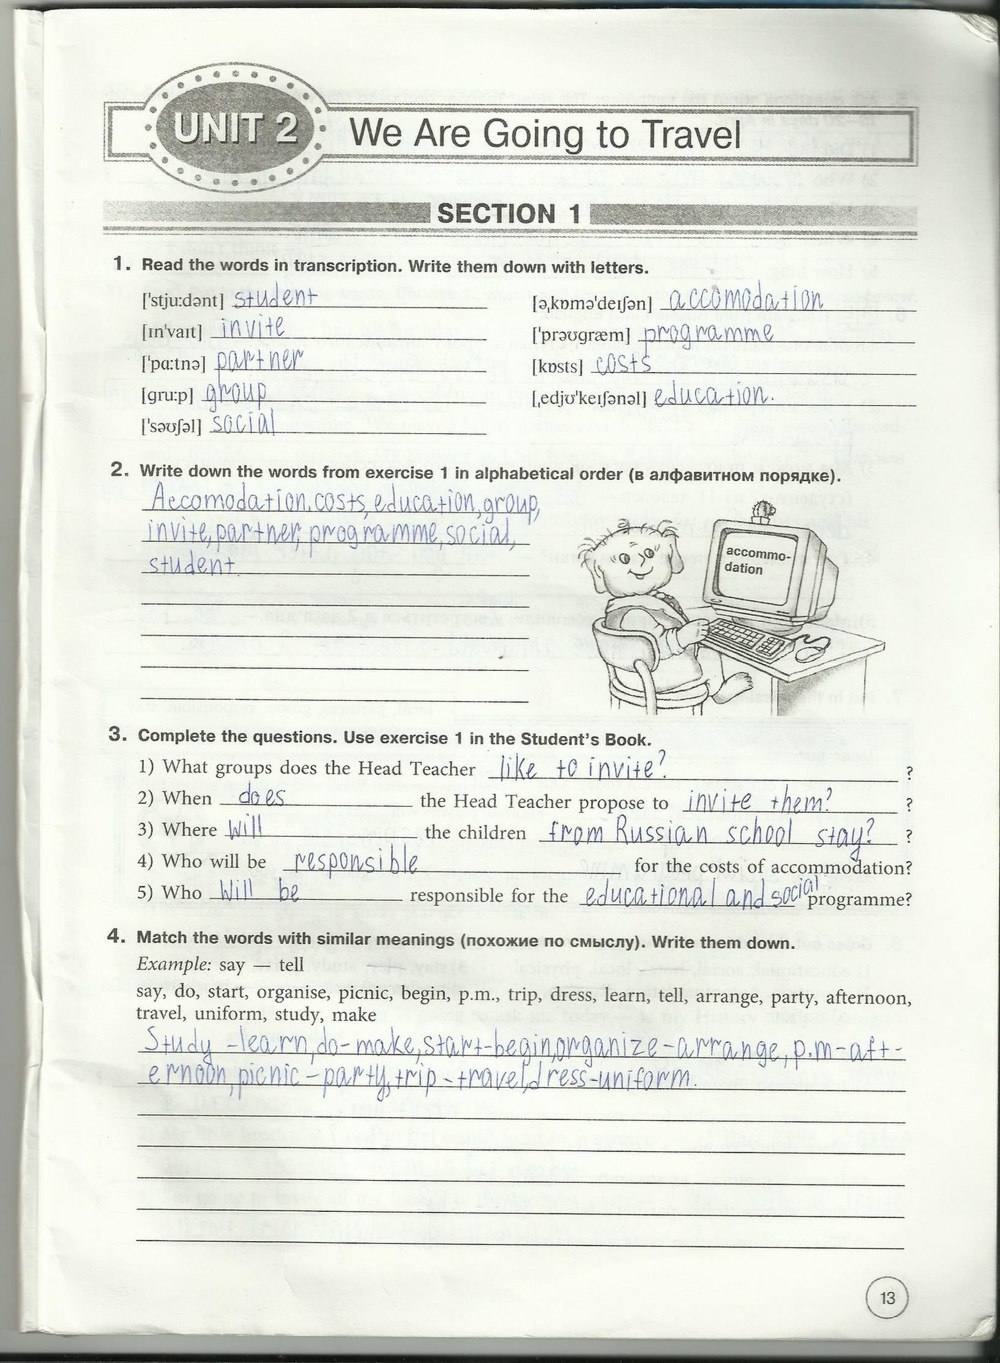 UNIT 2 We Are Going to Travel
SECTION 1
1. Read the words in transcription. Write them down with letters.
[ˈstju:dənt] student [əˌkɒməˈdeɪʃən] accomodation
[ɪnˈvaɪt] invite [ˈprəʊɡræm] programme
[ˈpɑ:tnə] partner [kɒsts] costs
[ɡru:p] group [ˌedjʊˈkeɪʃənəl] education.
[ˈsəʊʃəl] social
2. Write down the words from exercise 1 in alphabetical order (в алфавитном порядке).
Accomodation, costs, education, group,
invite, partner, programme, social,
student
accommo-
dation
3. Complete the questions. Use exercise 1 in the Student's Book.
1) What groups does the Head Teacher like to invite? ?
2) When does the Head Teacher propose to invite them? ?
3) Where will the children from Russian school stay? ?
4) Who will be responsible for the costs of accommodation?
5) Who will be responsible for the educational and social programme?
4. Match the words with similar meanings (похожие по смыслу). Write them down.
Example: say — tell
say, do, start, organise, picnic, begin, p.m., trip, dress, learn, tell, arrange, party, afternoon,
travel, uniform, study, make
Study - learn, do - make, start - begin, organize - arrange, p.m - aft-
ernoon, picnic - party, trip - travel, dress - uniform.
13